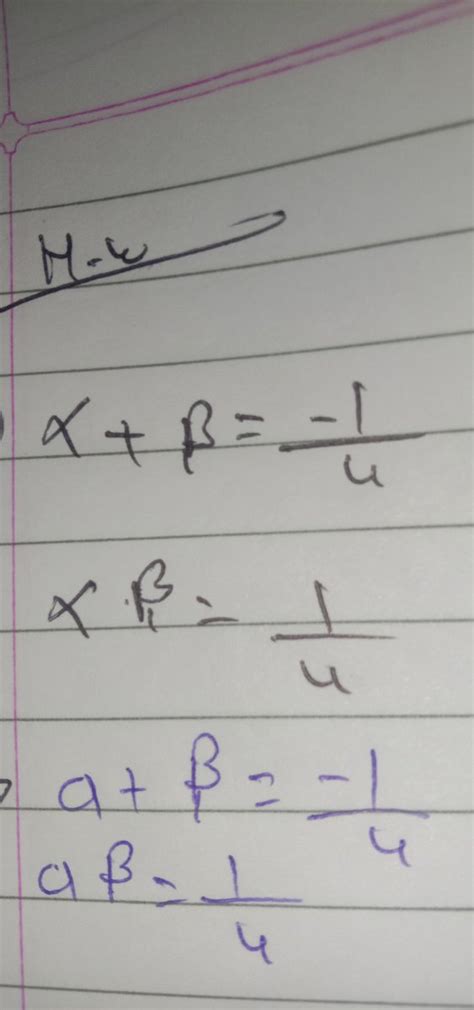 H-w
α + β = -1/4
α β = 1/4
a + β = -1/4
a β = 1/4